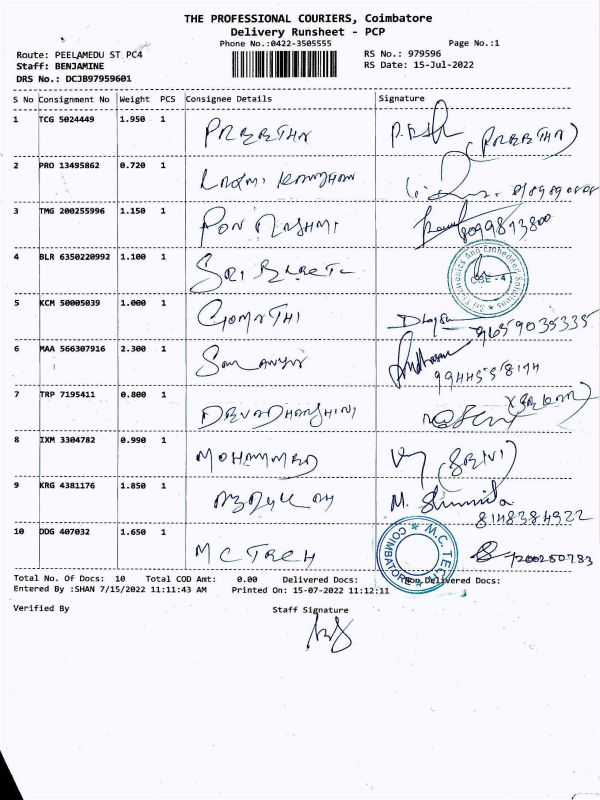 THE PROFESSIONAL COURIERS, Coimbatore
Delivery Runsheet - PCP
Phone No.:0422-3505555
Page No.:1
Route: PEELAMEDU ST PC4
RS No.: 979596
Staff: BENJAMINE
RS Date: 15-Jul-2022
DRS No.: DCJB97959601
S No Consignment No Weight PCS Consignee Details Signature
1 TCG 5024449 1.950 1 PREETHA (PREETHA)
2 PRO 13495862 0.720 1
3 TMG 200255996 1.150 1 PON RASHMI 8099813800
4 BLR 6350220992 1.100 1 SRI
5 KCM 50005039 1.000 1 GOMATHI 9659035335
6 MAA 566307916 2.300 1 9944558194
7 TRP 7195411 0.800 1 DEVADHARSHINI
8 IXM 3304782 0.990 1 MOHAMMED
9 KRG 4381176 1.850 1 M. 8148384922
10 DDG 407032 1.650 1 MC TECH M.C. TEC COIMBATORE
Total No. Of Docs: 10 Total COD Amt: 0.00 Delivered Docs: Non Delivered Docs:
Entered By :SHAN 7/15/2022 11:11:43 AM Printed On: 15-07-2022 11:12:11
Verified By Staff Signature